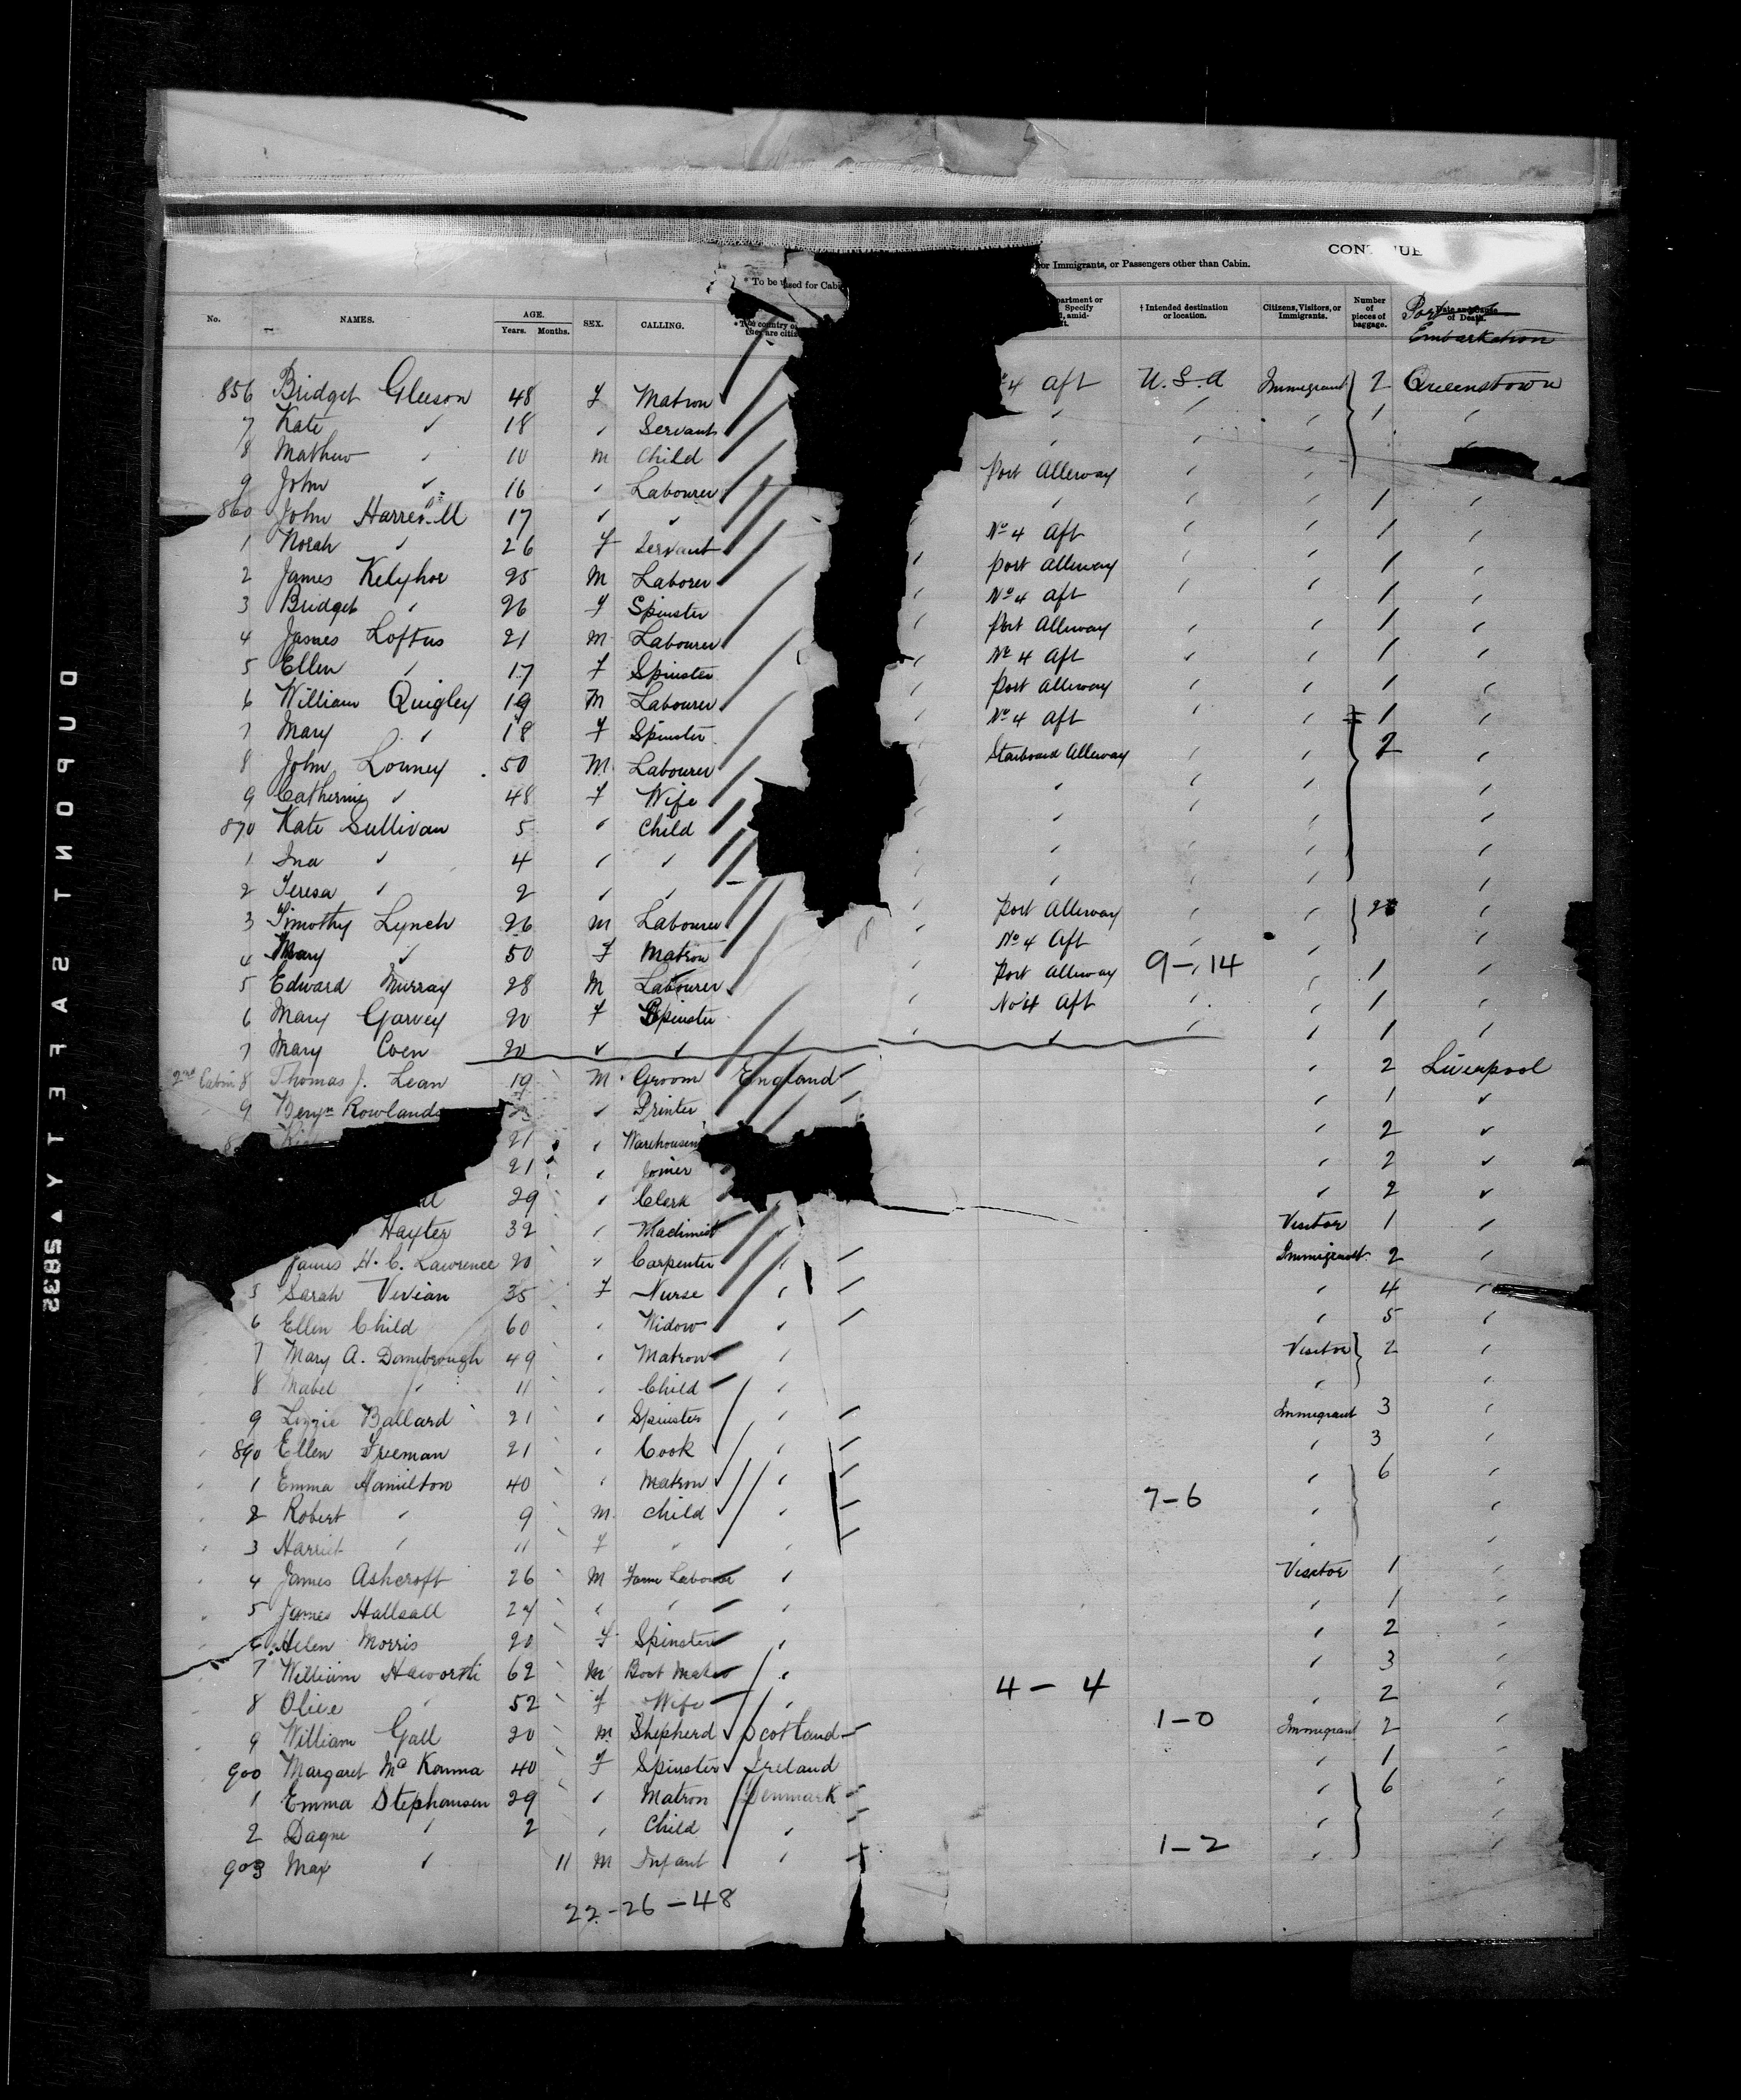 CONTINUE
* To be used for Cabi
or Immigrants, or Passengers other than Cabin.
No. NAMES. AGE. Years. Months. SEX. CALLING. * The country of they are citiz partment or Specify d, amid- ft. † Intended destination or location. Citizens, Visitors, or Immigrants. Number of pieces of baggage. Date and Cause of Death. Port Embarkation
856 Bridget Gleeson 48 F Matron 4 Aft U.S.A Immigrant 2 Queenstown
7 Kate 〃 18 〃 Servant 〃 〃 〃 1 〃
8 Mathew 〃 10 M Child 〃 〃 〃
9 John 〃 16 〃 Labourer Port Alleway 〃 〃
860 John 17 〃 〃 〃 〃 〃 1 〃
1 Norah 〃 26 F Servant No 4 Aft 〃 〃 1 〃
2 James 25 M Laborer Port Alleway 〃 〃 1 〃
3 Bridget 〃 26 F Spinster No 4 Aft 〃 〃 1 〃
4 James Loftus 21 M Labourer Port Alleway 〃 〃 1 〃
5 Ellen 〃 17 F Spinster No 4 Aft 〃 〃 1 〃
6 William Quigley 19 M Labourer Port Alleway 〃 〃 1 〃
7 Mary 〃 18 F Spinster No 4 Aft 〃 〃 1 〃
8 John 50 M Labourer Starboard Alleway 〃 〃 2 〃
9 Catherine 〃 48 F Wife 〃 〃 〃 〃
870 Kate Sullivan 5 〃 Child 〃 〃 〃 〃
1 Ina 〃 4 〃 〃 〃 〃 〃 〃
2 Teresa 〃 2 〃 〃 〃 〃 〃 〃
3 Timothy Lynch 26 M Labourer Port Alleway 〃 〃 2 〃
4 Mary 〃 50 F Matron No 4 Aft 〃 〃 〃
5 Edward Murray 28 M Labourer Port Alleway 9-14 〃 1 〃
6 Mary Garvey 20 F Spinster No 4 Aft 〃 〃 1 〃
7 Mary Coen 20 〃 〃 〃 〃 〃 1 〃
2nd Cabin 8 Thomas J. Lean 19 M Groom England 〃 2 Liverpool
9 Benjn Rowland 〃 Printer 〃 〃 1 〃
21 〃 Warehousem 〃 2 〃
21 〃 Joiner 〃 2 〃
29 〃 Clerk 〃 2 〃
Hayter 32 〃 Machinist 〃 Visitor 1 〃
James H. C. Lawrence 20 〃 Carpenter 〃 Immigrant 2 〃
5 Sarah Vivian 35 F Nurse 〃 〃 4 〃
6 Ellen Child 60 〃 Widow 〃 〃 5 〃
7 Mary A. Dambrough 49 〃 Matron 〃 Visitor 2 〃
8 Mabel 〃 11 〃 Child 〃 〃 〃
9 Lizzie Ballard 21 〃 Spinster 〃 Immigrant 3 〃
890 Ellen Freeman 21 〃 Cook 〃 〃 3 〃
1 Emma Hamilton 40 〃 Matron 〃 〃 6 〃
2 Robert 〃 9 M Child 〃 7-6 〃 〃
3 Harriet 〃 11 F 〃 〃 〃 〃
4 James Ashcroft 26 M Farm Labourer 〃 Visitor 1 〃
5 James Hallsall 24 〃 〃 〃 〃 1 〃
6 Helen Morris 20 F Spinster 〃 〃 2 〃
7 William Haworth 62 M Boot Maker 〃 〃 3 〃
8 Olive 〃 52 F Wife 〃 4-4 〃 2 〃
9 William Gall 20 M Shepherd Scotland 1-0 Immigrant 2 〃
900 Margaret McKenna 40 F Spinster Ireland 〃 1 〃
1 Emma Stephansen 29 〃 Matron Denmark 〃 6 〃
2 Dagne 〃 2 〃 Child 〃 〃 〃
903 Max 〃 11 M Infant 〃 1-2 〃 〃
22-26-48
DUPONT SAFETY ▲ 5832